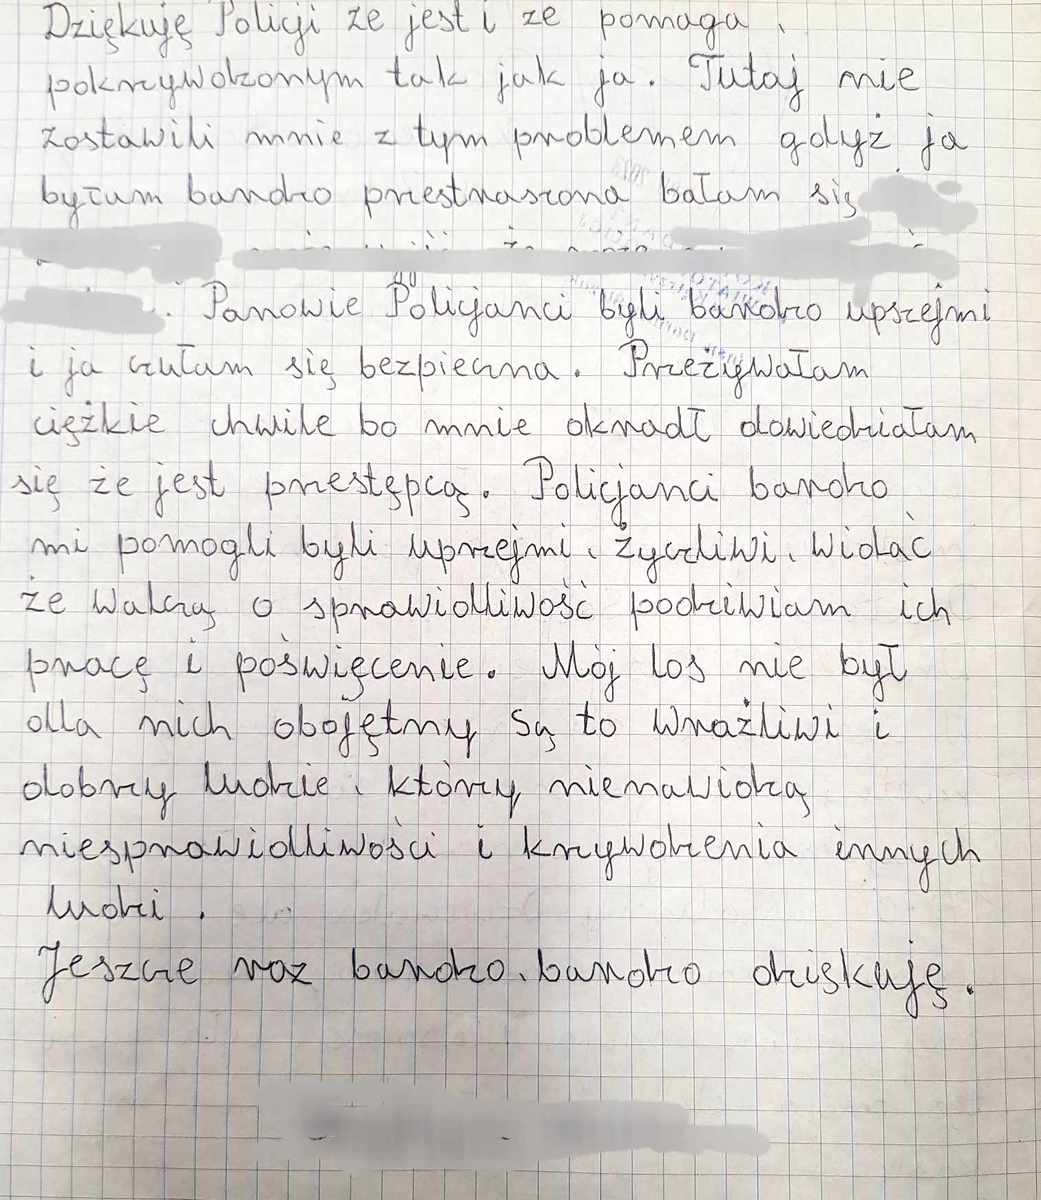 Dziękuję Policji że jest i że pomaga,
pokrzywdzonym tak jak ja. Tutaj nie
zostawili mnie z tym problemem gdyż ja
byłam bardzo przestraszona bałam się
. Panowie Policjanci byli bardzo uprzejmi
i ja czułam się bezpieczna. Przeżywałam
ciężkie chwile bo mnie okradł dowiedziałam
się że jest przestępcą. Policjanci bardzo
mi pomogli byli uprzejmi, życzliwi, widać
że walczą o sprawiedliwość podziwiam ich
pracę i poświęcenie. Mój los nie był
dla nich obojętny są to wrażliwi i
dobrzy ludzie, którzy nienawidzą
niesprawiedliwości i krzywdzenia innych
ludzi.
Jeszcze raz bardzo, bardzo dziękuję.